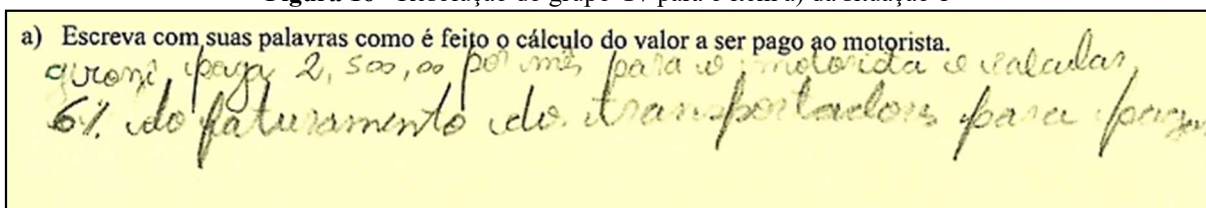 a) Escreva com suas palavras como é feito o cálculo do valor a ser pago ao motorista.
paga 2,500,00 por mês para o motorida e calcular
6% do faturamento do transportadors para pagar